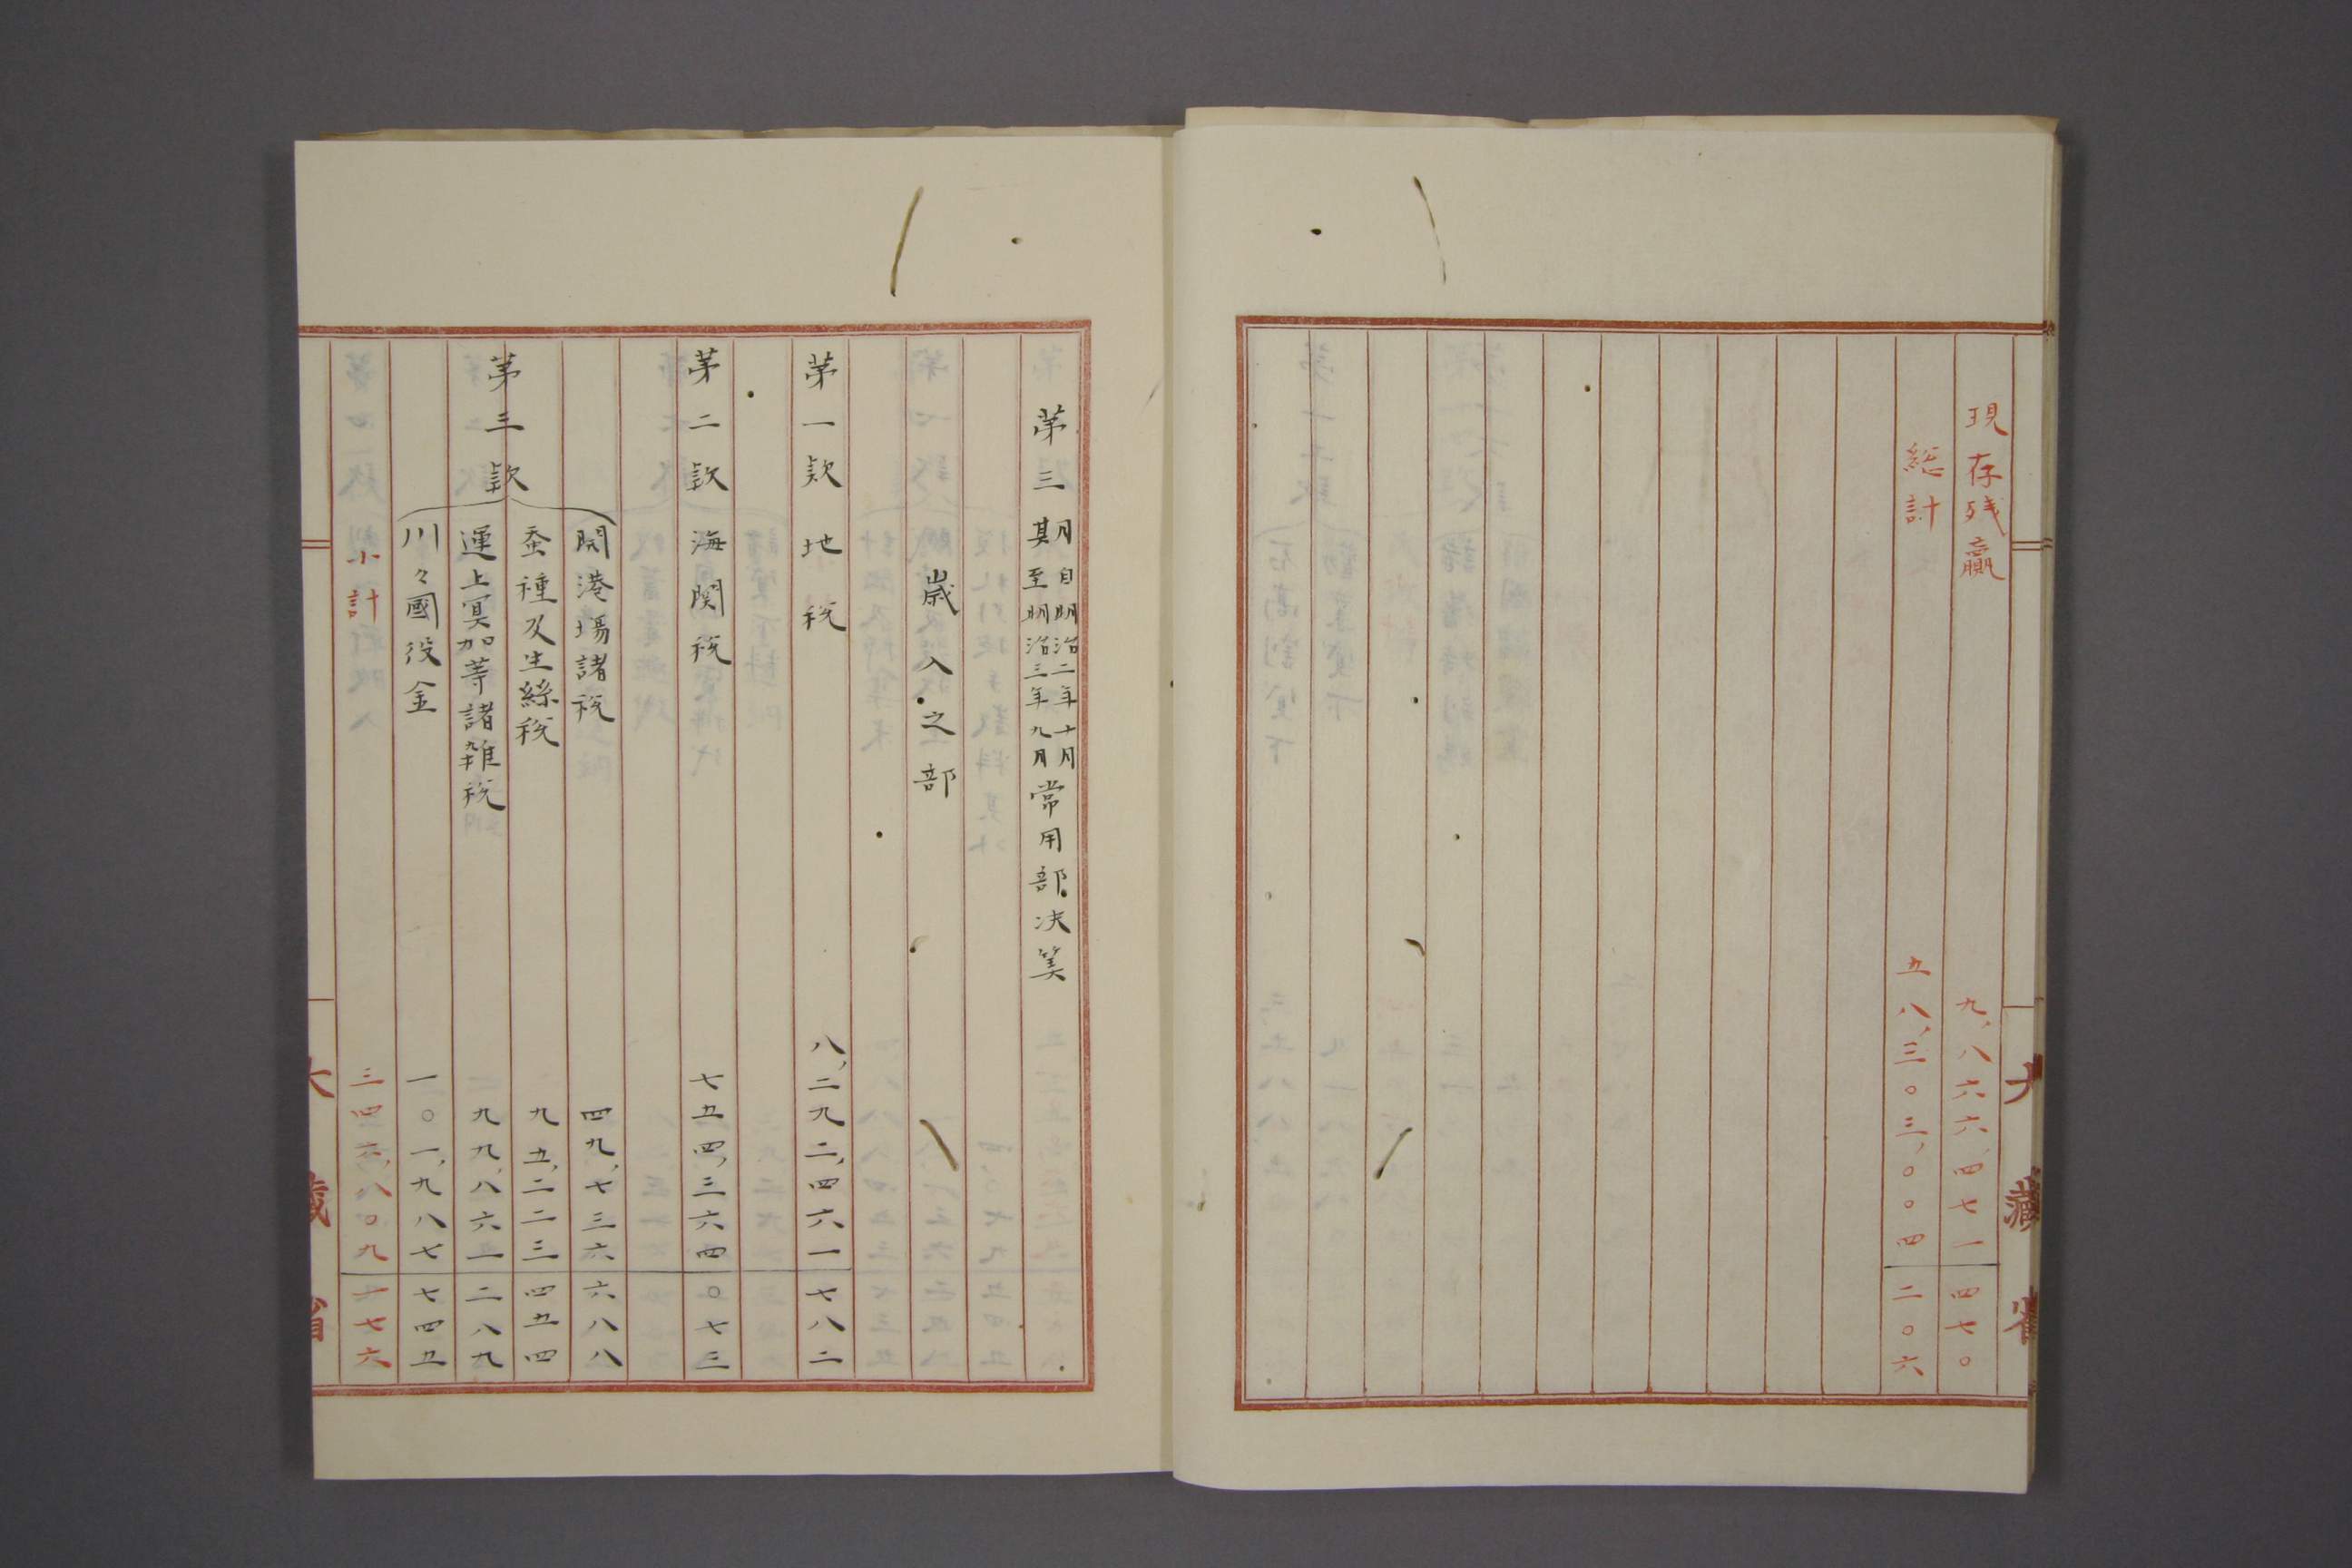 大藏省
現存残贏 九、八六六、四七一 四七〇
総計 五八、三〇三、〇〇四 二〇六
第三期 自明治二年十月 至明治三年九月 常用部决算
歳入之部
第一款 地税 八、二九二、四六一 七八二
第二款 海関税 七五四、三六四 〇七三
第三款
開港場諸税 四九、七三六 六八八
蚕種及生絲税 九五、二二三 四五四
運上冥加等諸雑税 九九、八六一 二八九
川々國役金 一〇一、九八七 七四五
小計 三四六、八〇九 一七六
大藏省